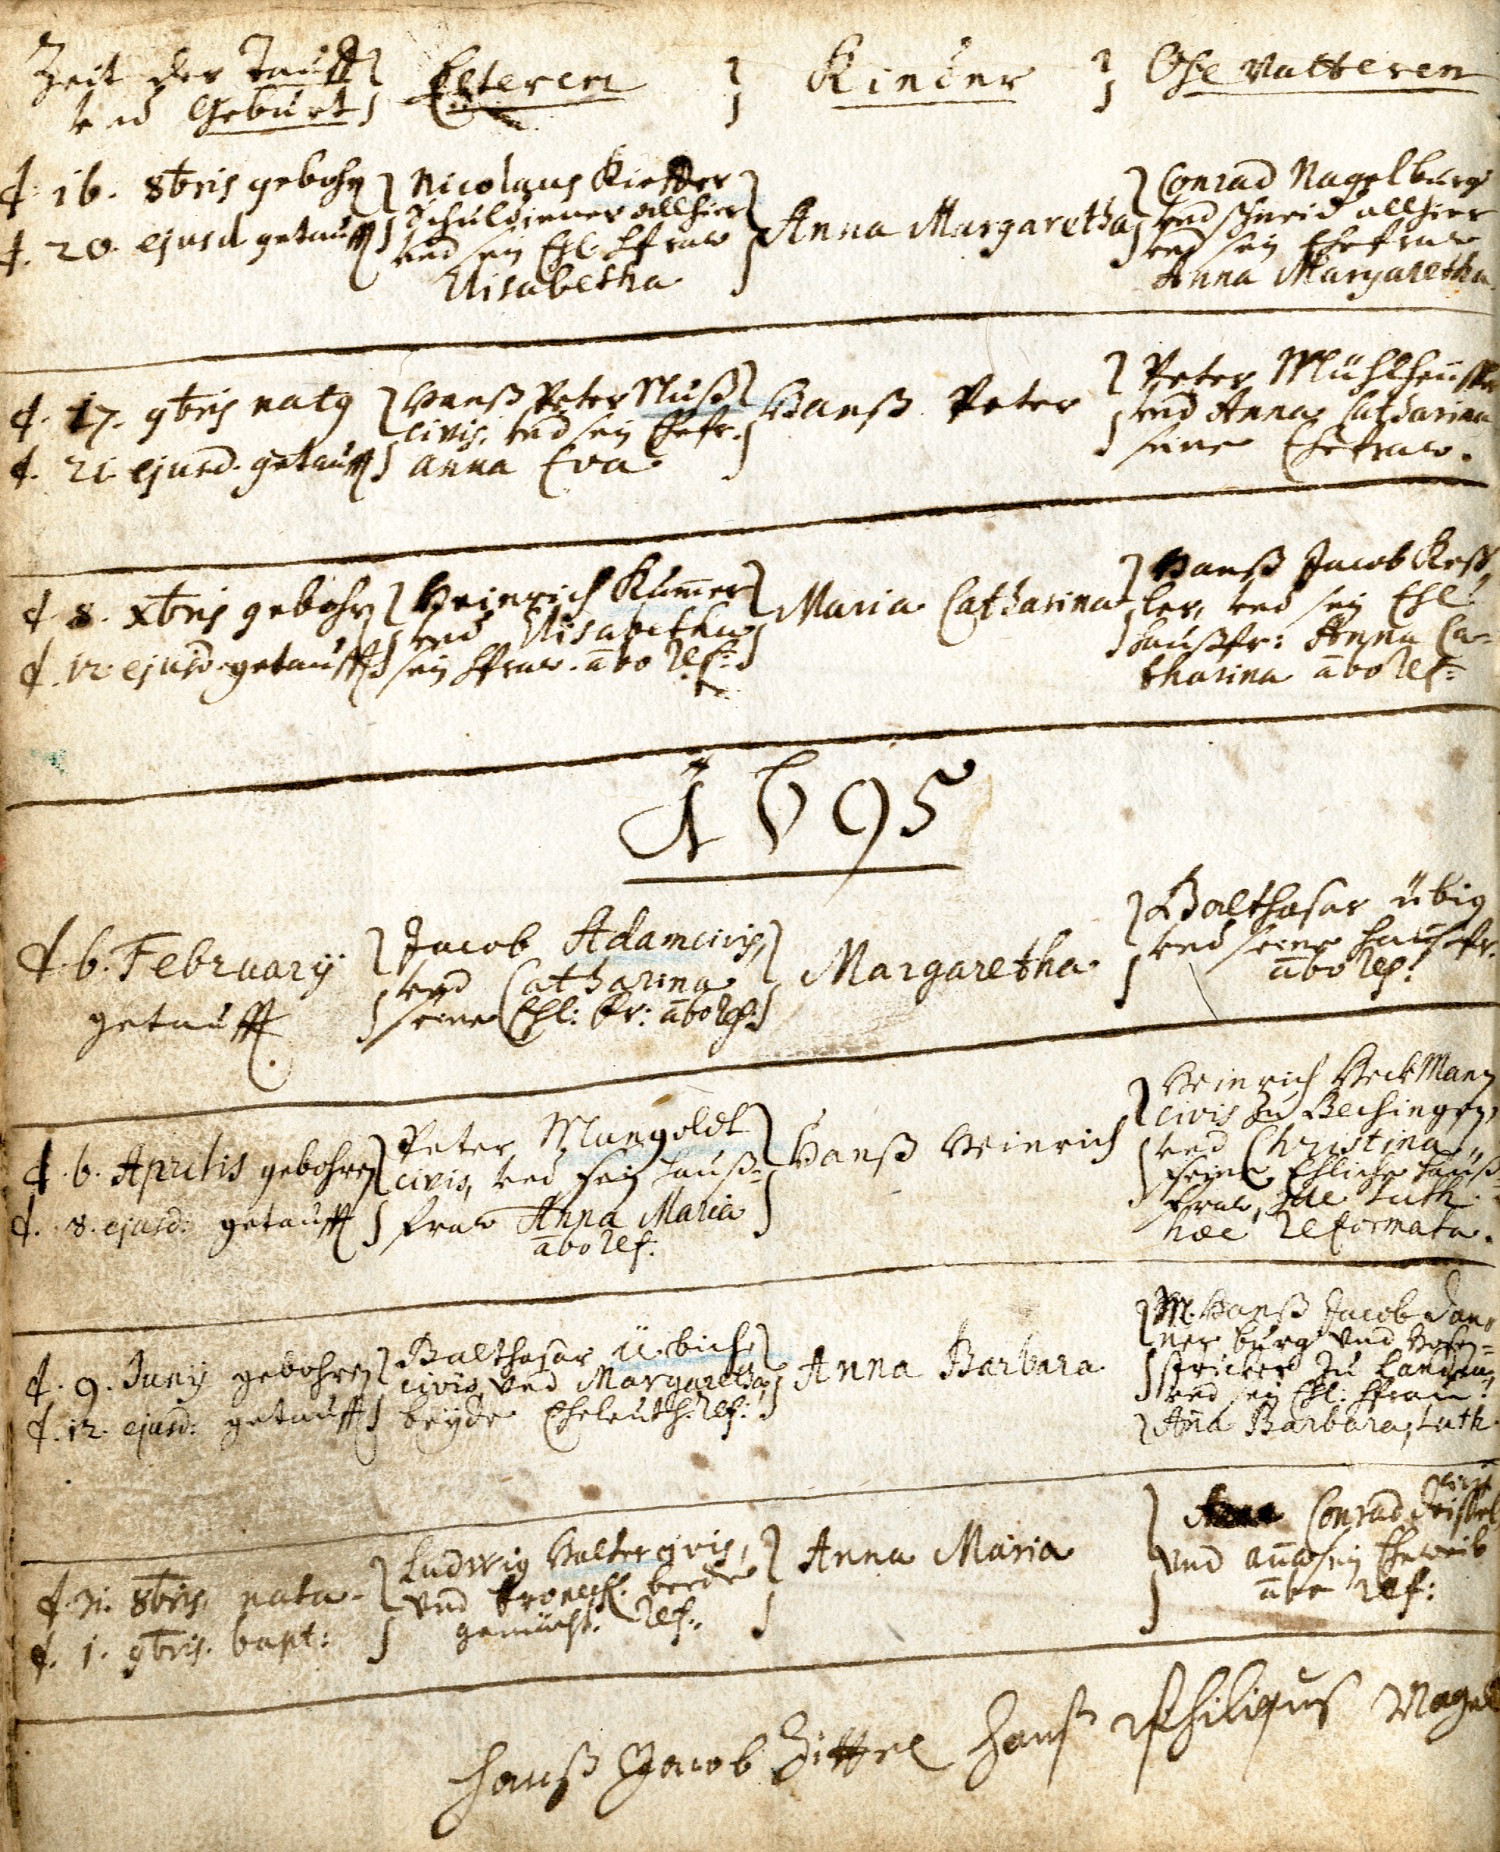 Zeit der Tauff
und Geburt
Elteren
Kinder
Gevatteren
d. 16. 8bris gebohrn
d. 20. ejusd getaufft
Nicolaus Kieffer
Schuldiener allhier
und sein Ehl. hfraw
Elisabetha
Anna Margaretha
Conrad Nagel burg
und schmid allhier
und sein Ehefraw
Anna Margaretha
d. 17. 9bris natg
d. 21. ejusd. getaufft
Hanß Peter Nuß
civis. und sein Ehefr.
anna Eva
Hanß Peter
Peter
und Anna Catharina
seine Ehefraw.
d. 8. Xbris gebohrn
d. 12. ejusd. getaufft
Heinrich Kum̄er
und Elisabetha
sein hfraw. ābo ref:
Maria Catharina
Hanß Jacob Keß,
ler, und sein Ehl.
haußfr: Anna Ca-
tharina ābo ref:
1695
d. 6. February
getaufft
Jacob Adam civis,
und Catharina
seine Ehl: fr: ābo ref:
Margaretha
Balthasar übig
und seine haußfr.
ābo ref:
d. 6. Aprilis gebohren
d. 8. ejusd: getaufft
Peter Mangoldt
civis, und sein hauß-
fraw Anna Maria
ābo ref:
Hanß Heinrich
Heinrich HeckMann
civis zu Bechingen,
und Christina
seine Ehliche hauß-
fraw, ille Luth.
haec reformata.
d. 9. Juny gebohren
d. 12. ejusd: getaufft
Balthasar übich
civis und Margaretha
beyde Eheleuth. ref:
Anna Barbara
M. Hanß Jacob Dan,
ner burg und Hosen-
stricker zu Landau,
und sein Ehl: hfrau
Aña Barbara, Luth.
d. 31. 8bris. nata.
d. 1. 9bris. bapt:
Ludwig Halter civis,
und beede
ref:
Anna Maria
Conrad
und sein Eheweib
ābo ref:
Hanß Jacob Zittel Hanß Philipus